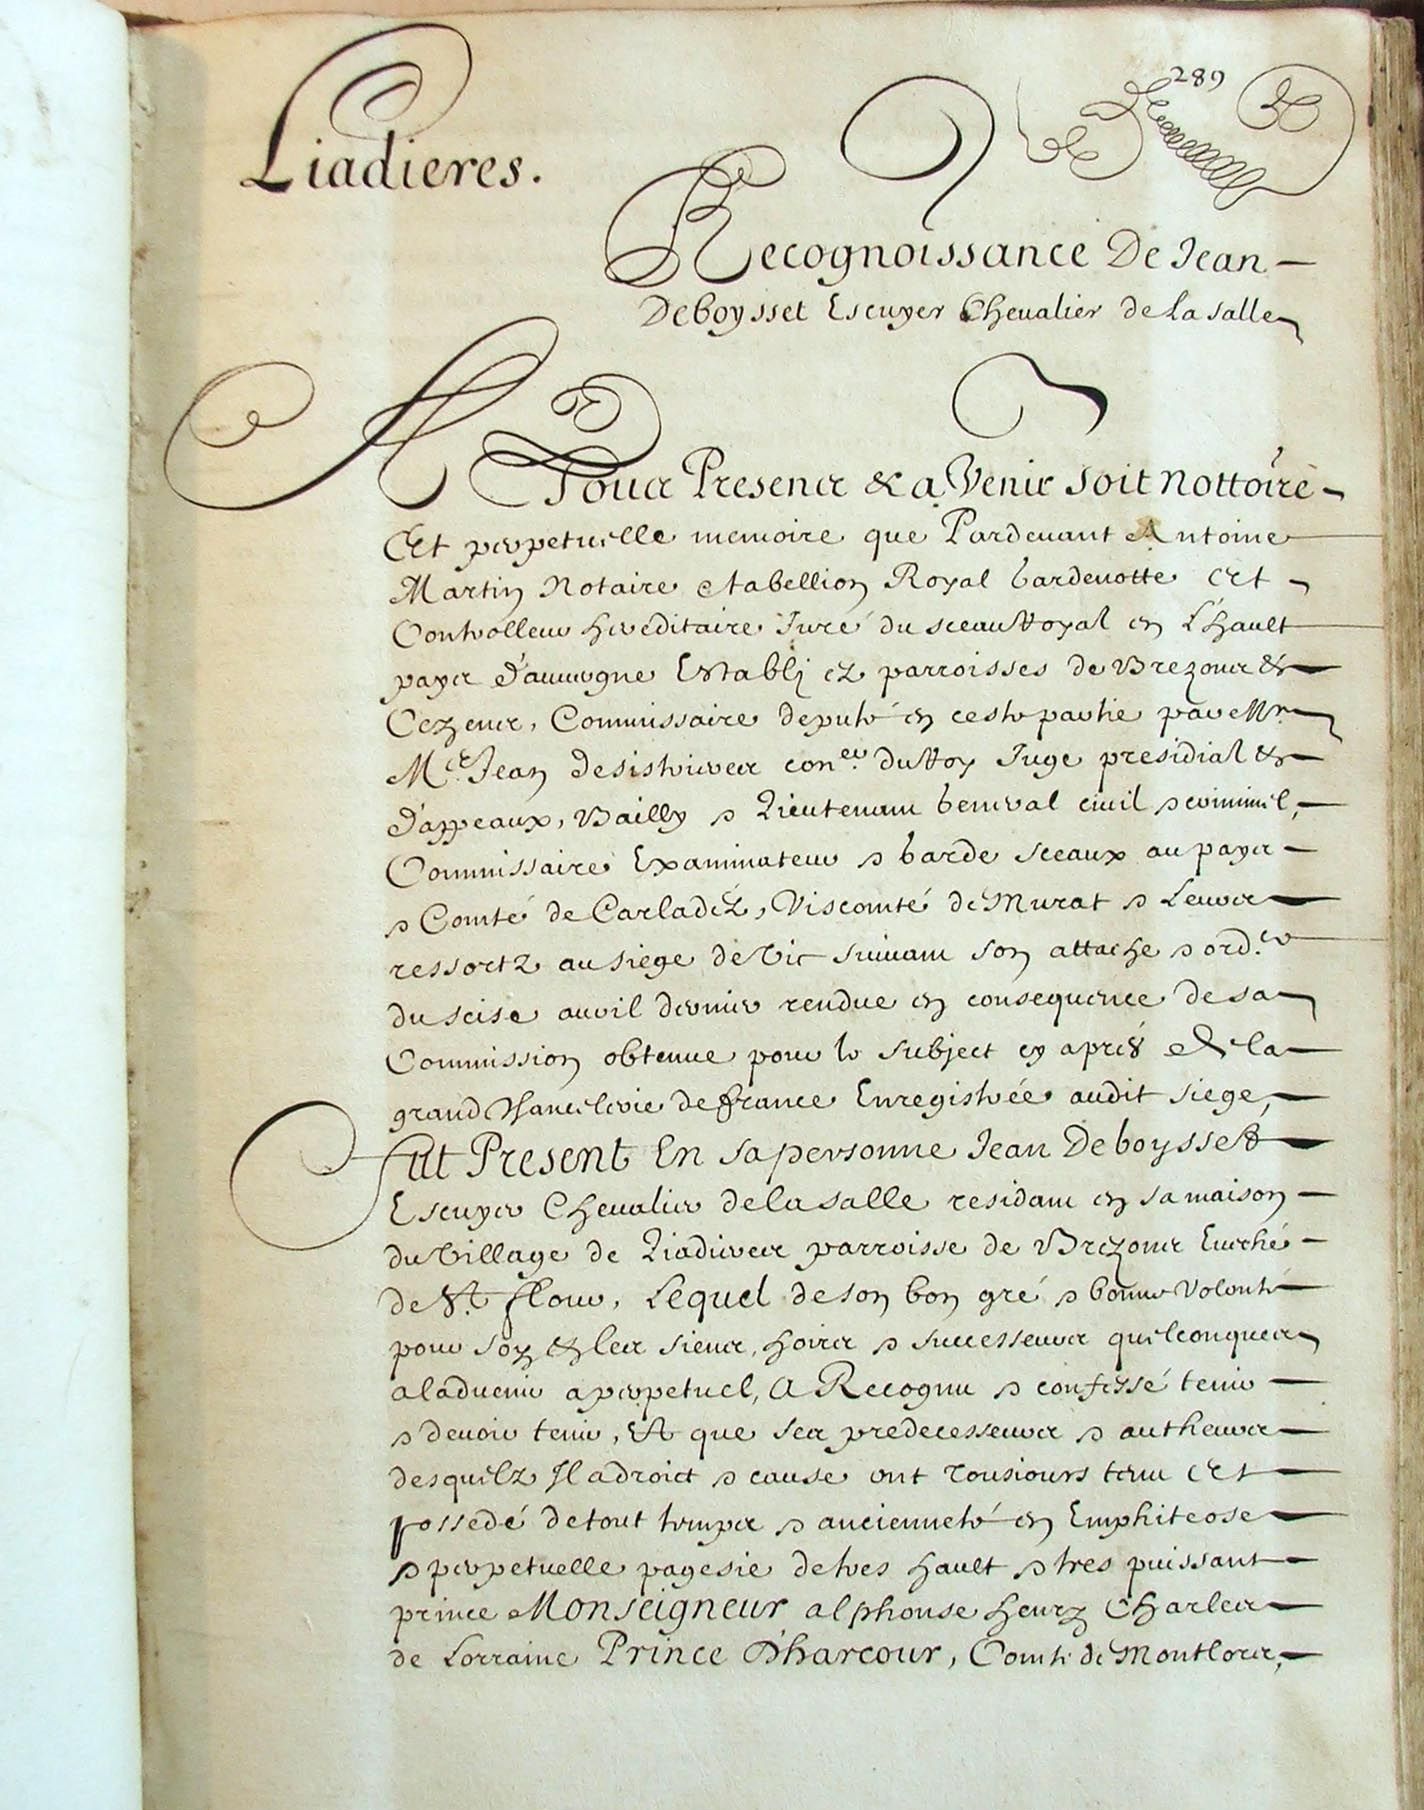 289
Liadieres.
Recognoissance De Jean
Deboysset Escuyer Chevalier de la salle
A Tous Presens & a Venir soit nottoire
Et perpetuelle memoire que Pardevant Antoine
Martin Notaire & tabellion Royal gardenotte Et
Controlleur hereditaire Juré du sceau Royal en L'hault
pays d'auvergne Establj ez parroisses de Brezons &
Cezens, Commissaire deputé en ceste partie par Mr.
Me. Jean desistrieres coner. du Roy Juge presidial &
d'appeaux, Bailly & Lieutenant general civil & criminel,
Commissaire Examinateur & garde sceaux au pays
& Comté de Carladéz, Viscomté de Murat & Leurs
ressortz au siege de Vic suivant son attache & ord.re
du seise avril dernier rendue en consequence de sa
Commission obtenue pour le subject cy aprés en la
grand Chancelerie de france Enregistrée audit siege,
fut Present En sa personne Jean Deboysset
Escuyer Chevalier de la salle residant en sa maison
du Village de Liadieres parroisse de Brezons Evesché
de St. flour, Lequel de son bon gré & bonne volonté
pour soy & les siens, hoirs & successeurs quelconques
a l'advenir a perpetuel, A Recognu & confessé tenir
& devoir tenir, Et que ses predecesseurs & autheurs
desquelz Il a droict & cause ont tousiours tenu Et
possedé de tout temps & ancienneté en Emphiteose
& perpetuelle pagesie de tres hault & tres puissant
prince Monseigneur alphonse henry Charles
de Lorraine Prince D'harcour, Comte de Montlors,